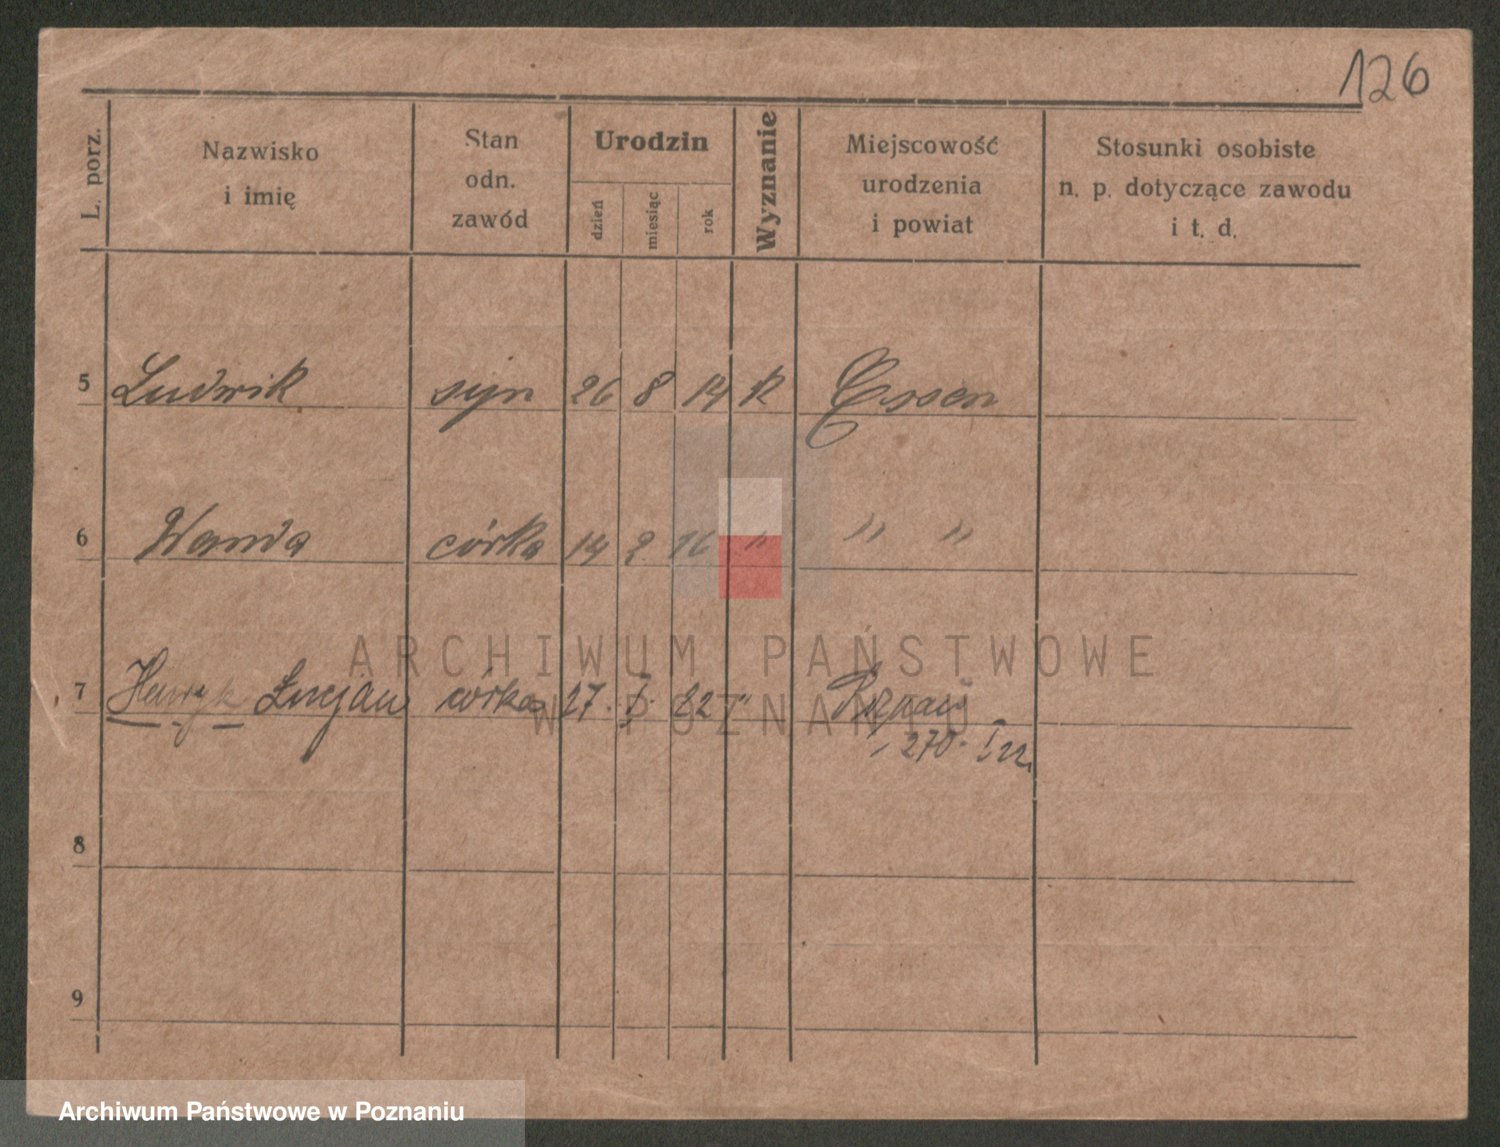 126
L. porz. Nazwisko i imię Stan odn. zawód Urodzin dzień miesiąc rok Wyznanie Miejscowość urodzenia i powiat Stosunki osobiste n. p. dotyczące zawodu i t. d.
5 Ludwik syn 26 8 14 k Essen
6 Wanda córka 14 2 16 " " "
7 Henryk Lucjan córka 27. I. 22 " Poznań
270. I 22.
8
9
ARCHIWUM PAŃSTWOWE
W POZNANIU
Archiwum Państwowe w Poznaniu